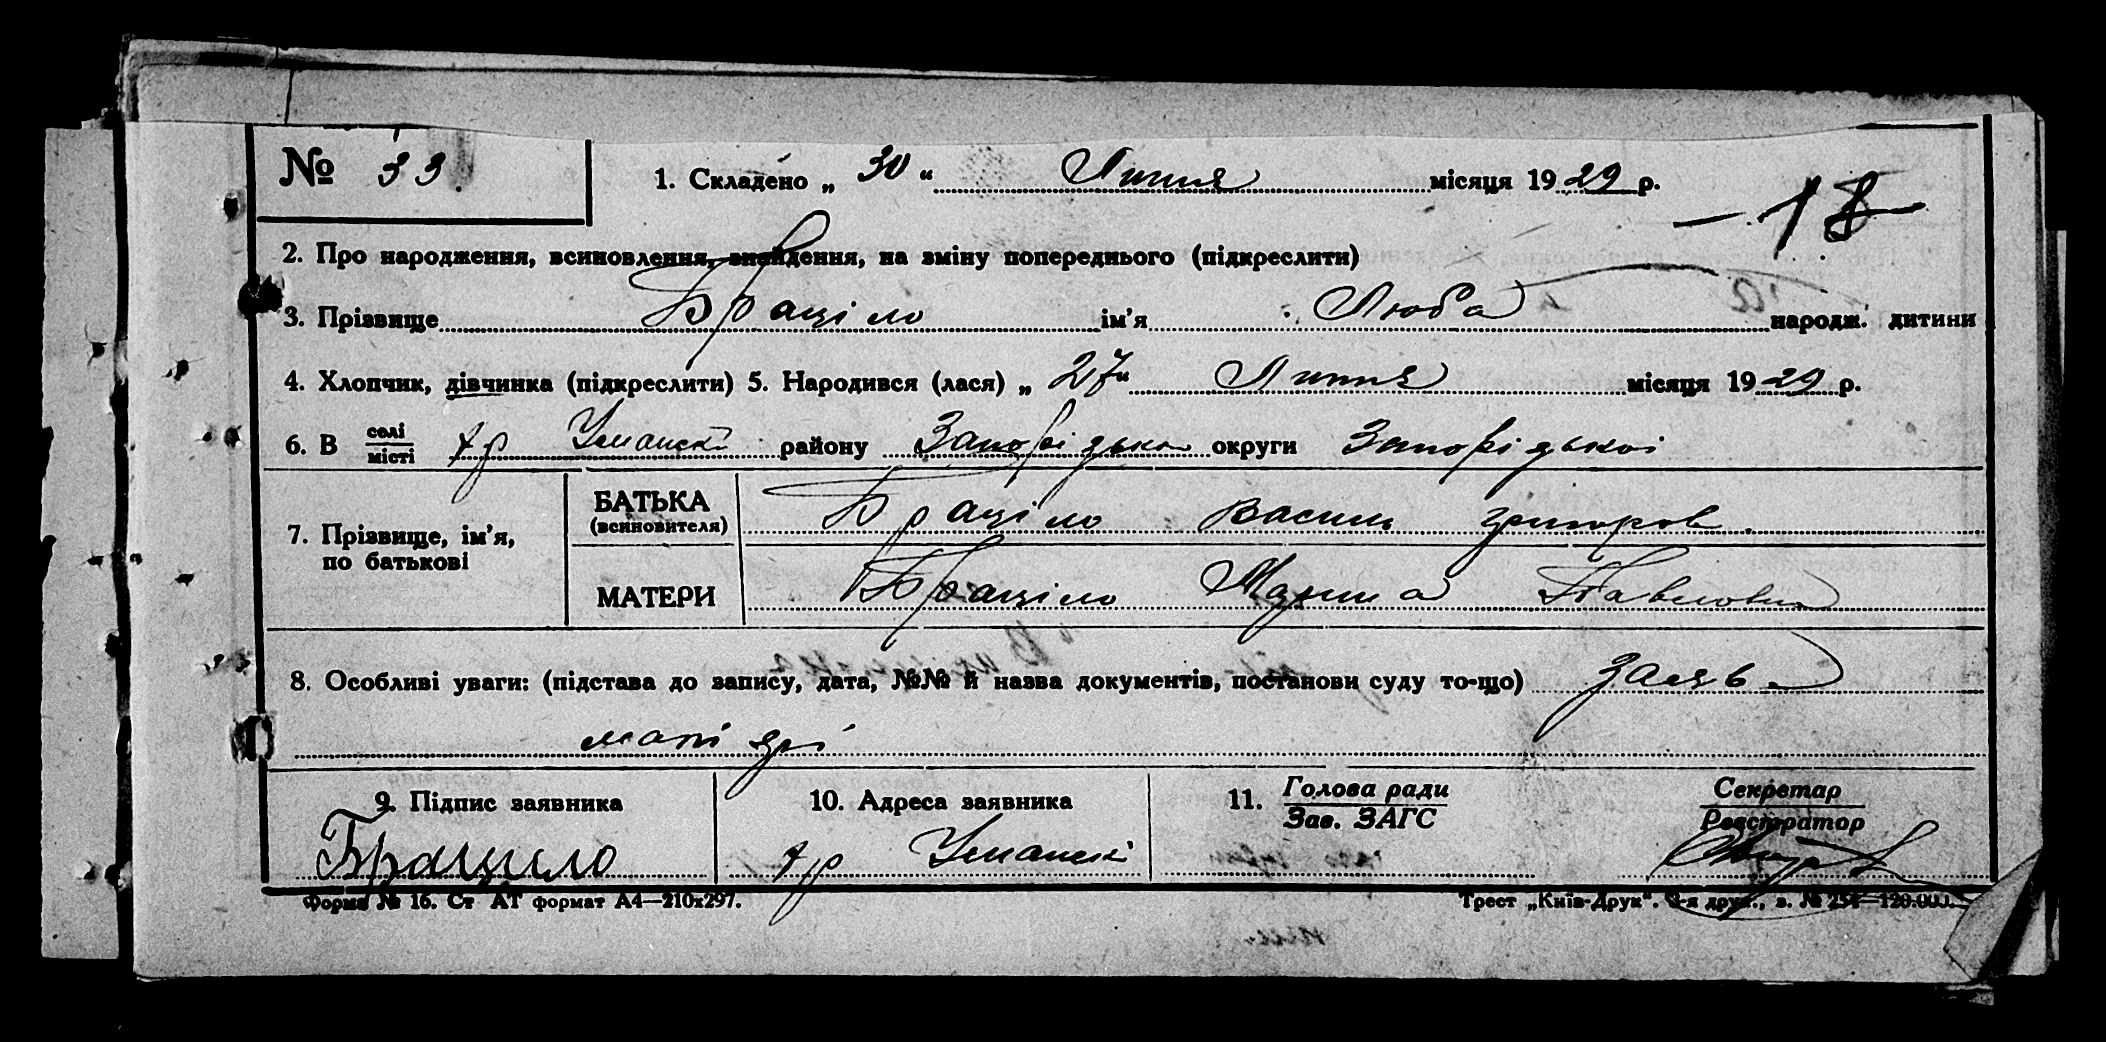 № 33. 1. Складено „ 30 “ Липня місяця 1929 р.
2. Про народження, всиновлення, знайдення, на зміну попереднього (підкреслити)
3. Прізвище Браціло ім'я Люба народж. дитини
4. Хлопчик, дівчинка (підкреслити) 5. Народився (лася) „ 27 “ Липня місяця 1929 р.
6. В селі
місті хр Уманскі району Запорізько округи Запорізькоі
7. Прізвище, ім'я,
по батькові
БАТЬКА
(всиновителя) Браціло Василь григоров
МАТЕРИ Браціло Марина Павловна
8. Особливі уваги: (підстава до запису, дата, №№ й назва документів, постанови суду то-що) заяв
9. Підпис заявника 10. Адреса заявника 11. Голова ради
Зав. ЗАГС Секретар
Реєстратор
Брацило хр Уманскі
Форма № 16. Ст АТ формат А4—210х297. Трест „Київ-Друк“. 3-я друк., з. № 254—120.000.